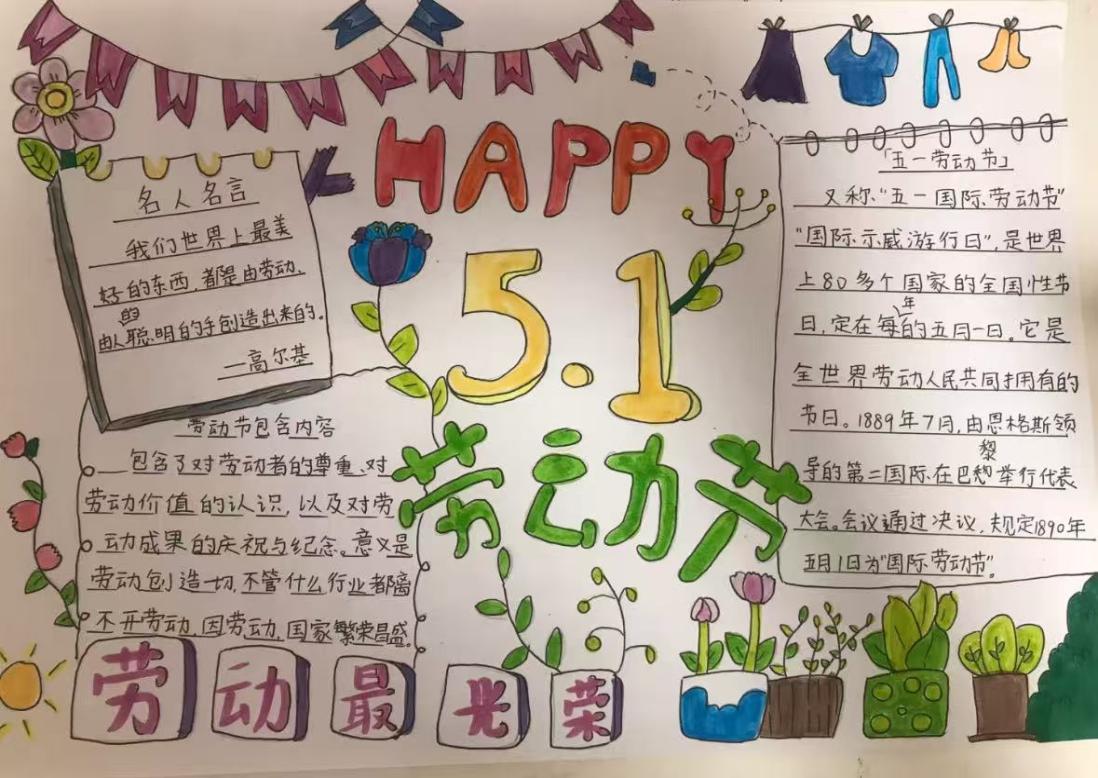 HAPPY
5.1
劳动节
名人名言
我们世界上最美
好的东西,都是由劳动、
由人的聪明的手创造出来的。
—高尔基
劳动节包含内容
包含了对劳动者的尊重、对
劳动价值的认识,以及对劳
动成果的庆祝与纪念。意义是
劳动创造一切,不管什么行业都离
不开劳动,因劳动,国家繁荣昌盛。
「五一劳动节」
又称“五一国际劳动节”
“国际示威游行日”,是世界
上80多个国家的全国性节
日,定在每年的五月一日。它是
全世界劳动人民共同拥有的
节日。1889年7月,由恩格斯领
导的第二国际在巴黎举行代表
大会。会议通过决议,规定1890年
五月1日为“国际劳动节”。
劳动最光荣